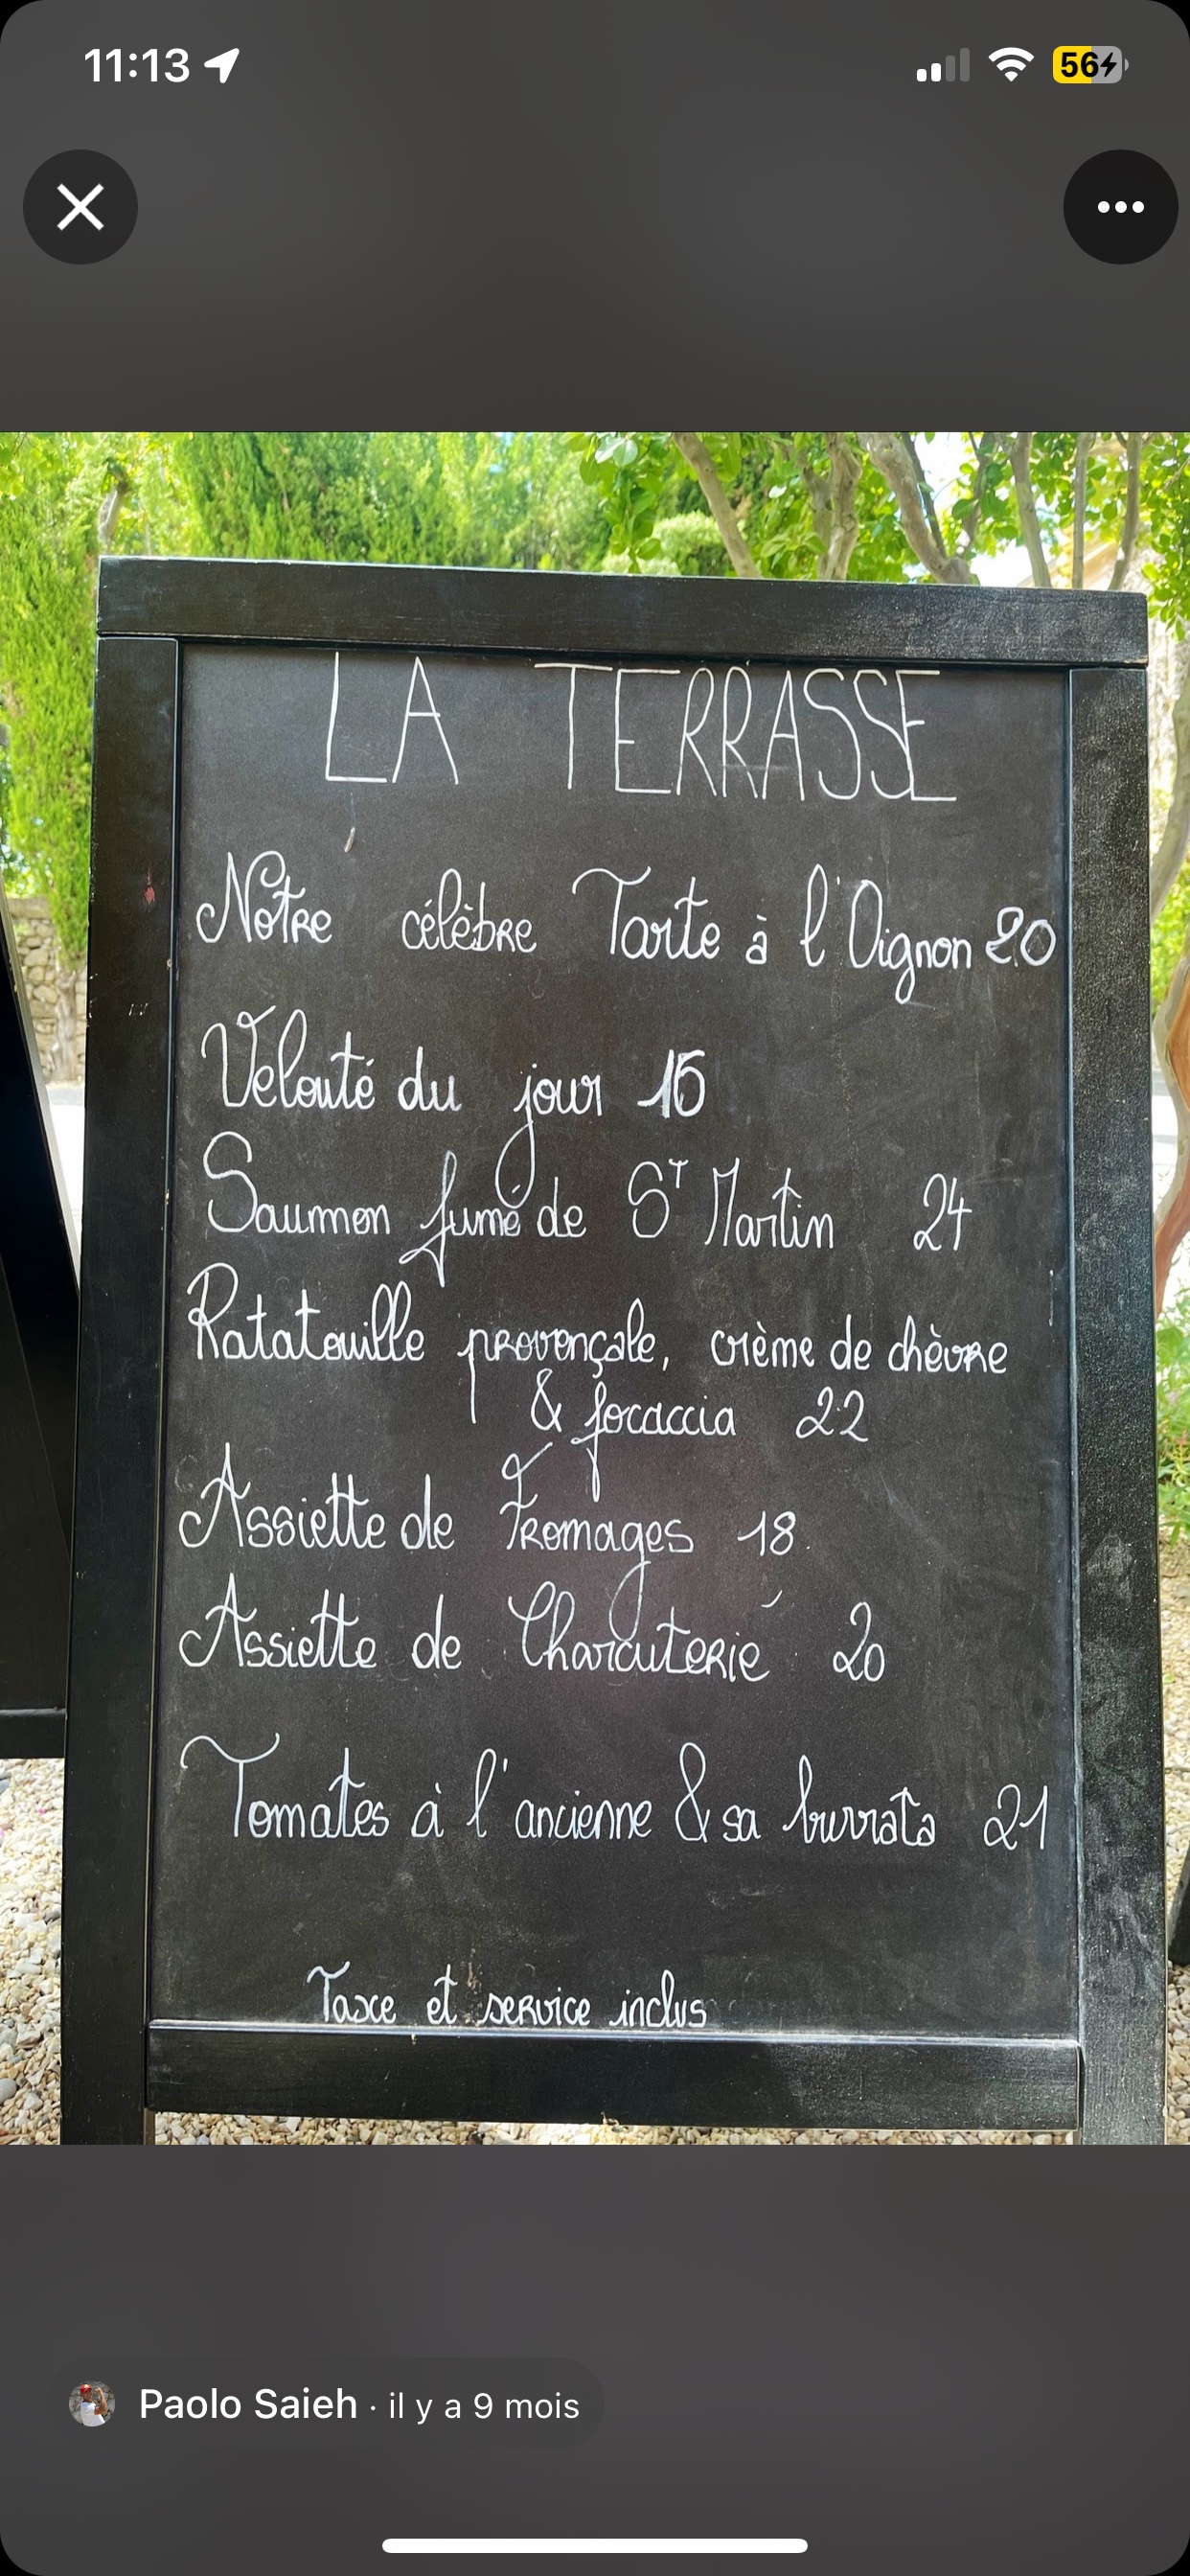 11:13
56
LA TERRASSE
Notre célèbre Tarte à l'Oignon 20
Velouté du jour 16
Saumon fumé de ST Martin 24
Ratatouille provençale, crème de chèvre
& focaccia 22
Assiette de Fromages 18
Assiette de Charcuterie 20
Tomates à l'ancienne & sa burrata 21
Taxe et service inclus
Paolo Saieh · il y a 9 mois